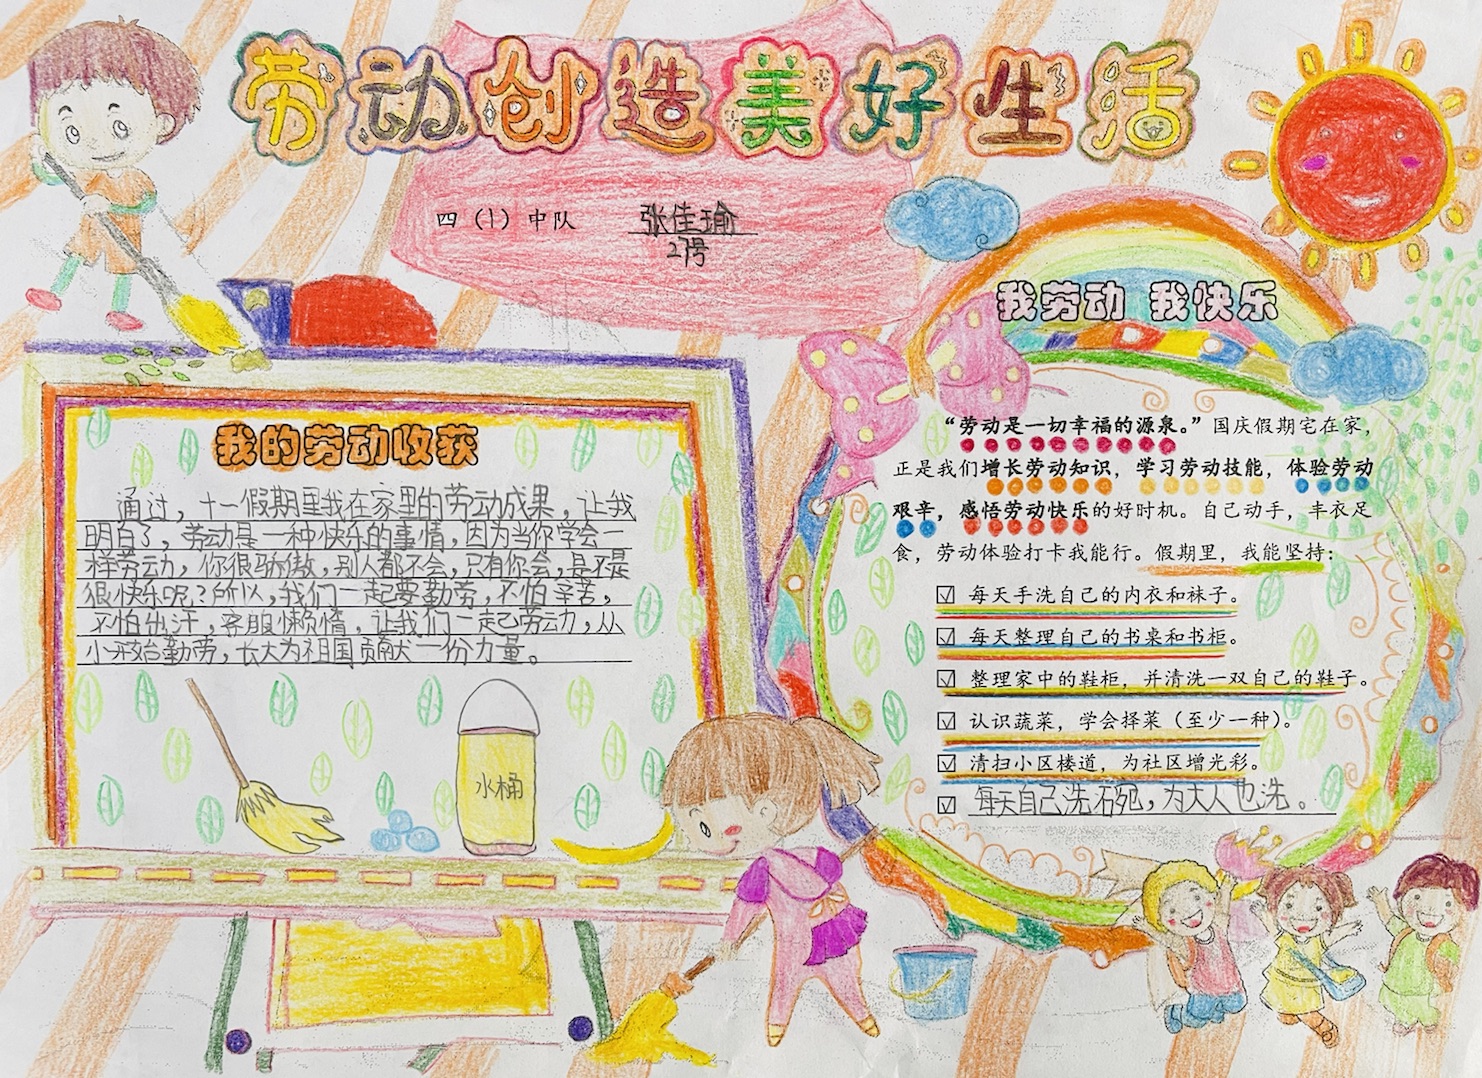 劳动创造美好生活
四（1）中队 张佳瑜
27号
我的劳动收获
通过，十一假期里我在家里的劳动成果，让我
明白了，劳动是一种快乐的事情，因为当你学会一
样劳动，你很骄傲，别人都不会，只有你会，是不是
很快乐呢？所以，我们一起要勤劳，不怕辛苦，
不怕出汗，客服懒惰，让我们一起劳动，从
小开始勤劳，长大为祖国贡献一份力量。
水桶
我劳动 我快乐
“劳动是一切幸福的源泉。”国庆假期宅在家，
正是我们增长劳动知识，学习劳动技能，体验劳动
艰辛，感悟劳动快乐的好时机。自己动手，丰衣足
食，劳动体验打卡我能行。假期里，我能坚持：
☑ 每天手洗自己的内衣和袜子。
☑ 每天整理自己的书桌和书柜。
☑ 整理家中的鞋柜，并清洗一双自己的鞋子。
☑ 认识蔬菜，学会择菜（至少一种）。
☑ 清扫小区楼道，为社区增光彩。
☑ 每天自己洗碗，为大人也洗。